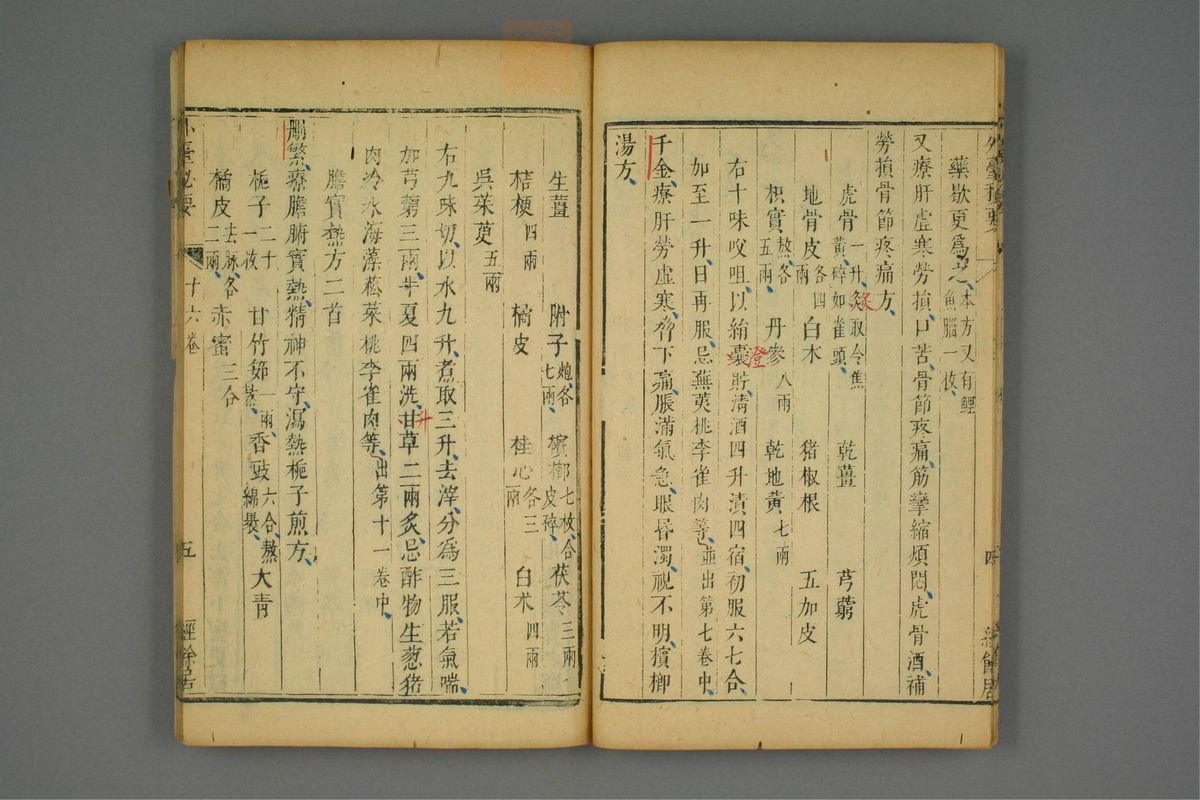 藥歇更爲之本方又有鯉魚腦一枚
又療肝虛寒勞損口苦骨節疼痛筋攣縮煩悶虎骨酒補
勞損骨節疼痛方
虎骨一升炙取令焦黃碎如雀頭 乾薑 芎藭
地骨皮各四兩 白朮 猪椒根 五加皮
枳實熬各五兩 丹參八兩 乾地黃七兩
右十味㕮咀以絹囊貯清酒四升漬四宿初服六七合
加至一升日再服忌蕪荑桃李雀肉等並出第七卷中
千金療肝勞虛寒脅下痛脹滿氣急眼昏濁視不明檳榔
湯方
生薑 附子炮各七兩 檳榔七枚合皮碎 茯苓三兩
桔梗四兩 橘皮 桂心各三兩 白朮四兩
吳茱萸五兩
右九味切以水九升煮取三升去滓分爲三服若氣喘
加芎藭三兩半夏四兩洗甘草二兩炙忌酢物生葱猪
肉冷水海藻菘菜桃李雀肉等出第十一卷中
膽實熱方二首
刪繁療膽腑實熱精神不守瀉熱梔子煎方
梔子二十一枚 甘竹茹一兩熬 香豉六合熬綿裹 大青
橘皮去脉各二兩 赤蜜三合
外臺秘要 十六卷 五 經餘居